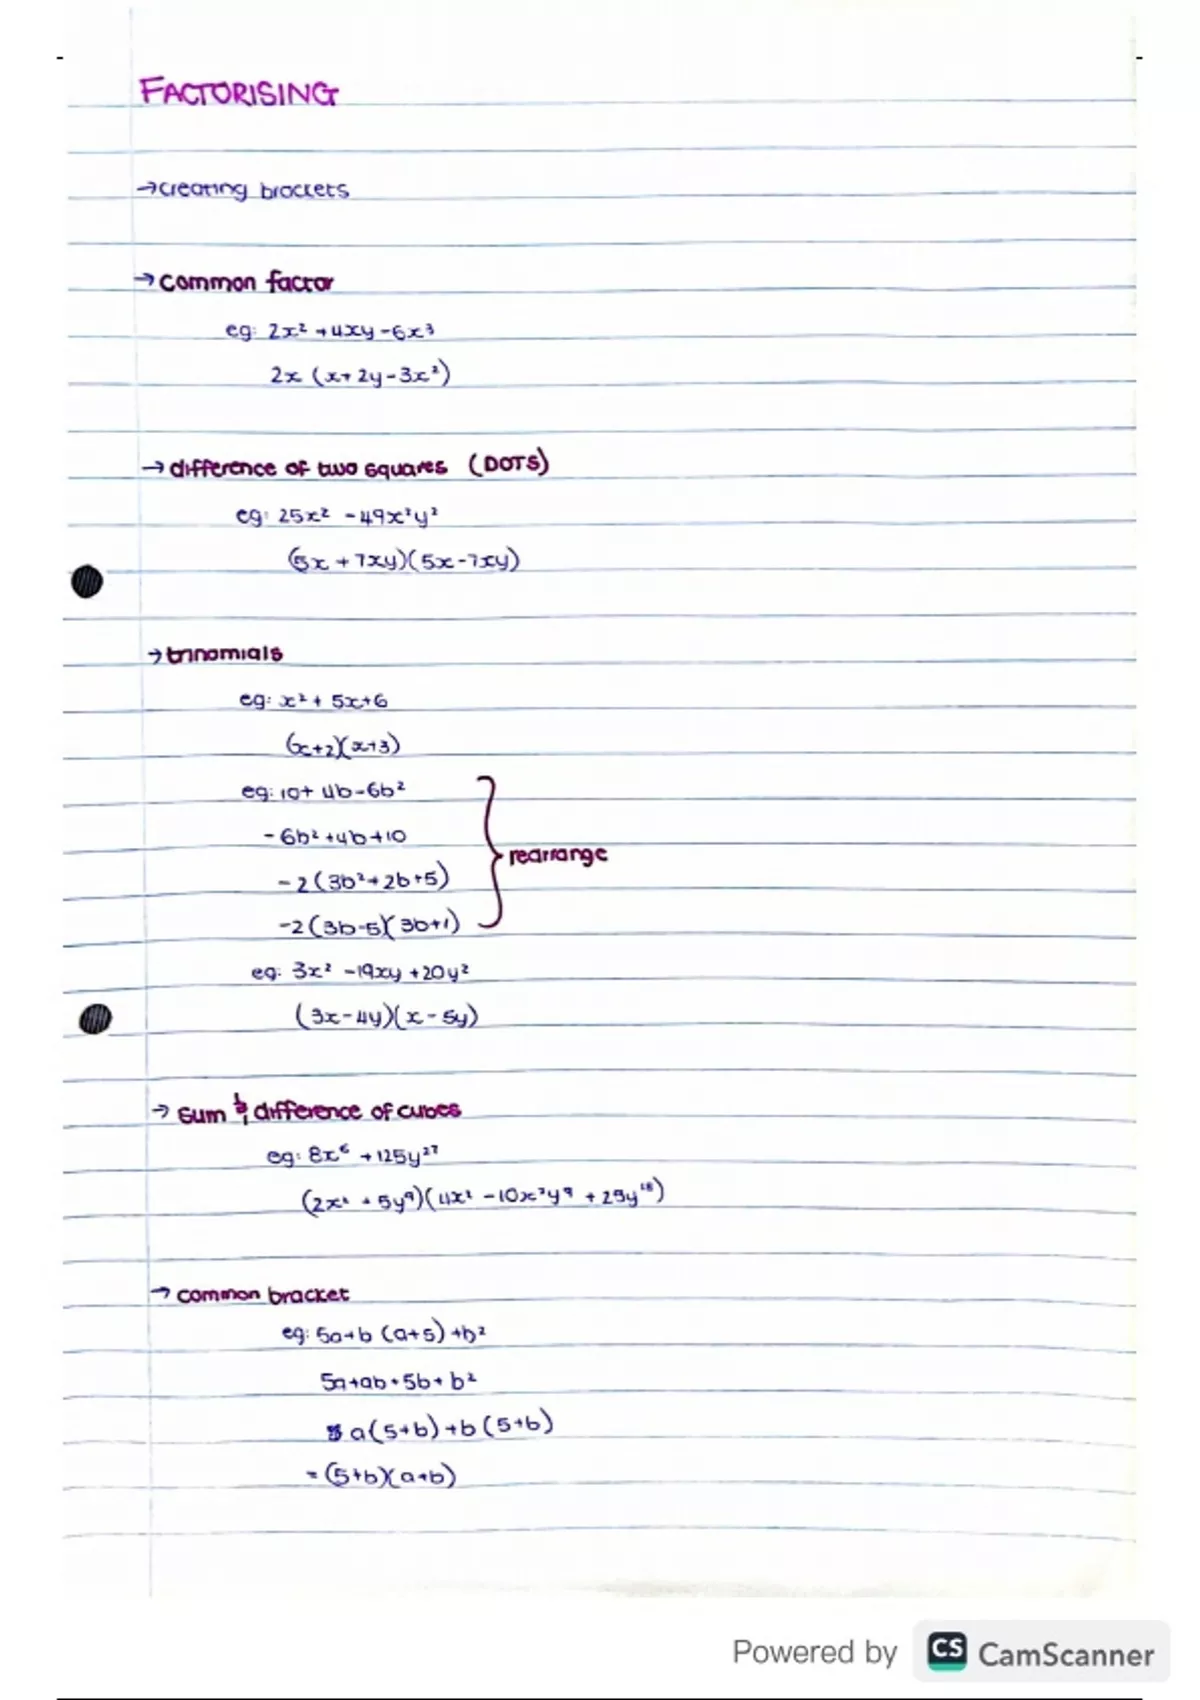 FACTORISING
→creating brackets
→common factor
eg: 2x² +4xy -6x³
2x (x+2y-3x²)
→ difference of two squares (DOTS)
eg: 25x² -49x²y²
(5x +7xy)(5x-7xy)
→trinomials
eg: x²+ 5x+6
(x+2)(x+3)
eg: 10+ 4b-6b²
-6b²+4b+10
-2(3b²+2b+5)
rearrange
-2(3b-5)(3b+1)
eg: 3x² -19xy +20y²
(3x-4y)(x-5y)
→ sum & difference of cubes
eg: 8x⁶ +125y²⁷
+ 5y⁹)(4x² -10x²y⁹ + 25y¹⁸)
→ common bracket
eg: 5a+b (a+5) +b²
5a+ab+5b+b²
a(5+b)+b(5+b)
= (5+b)(a+b)
Powered by CS CamScanner